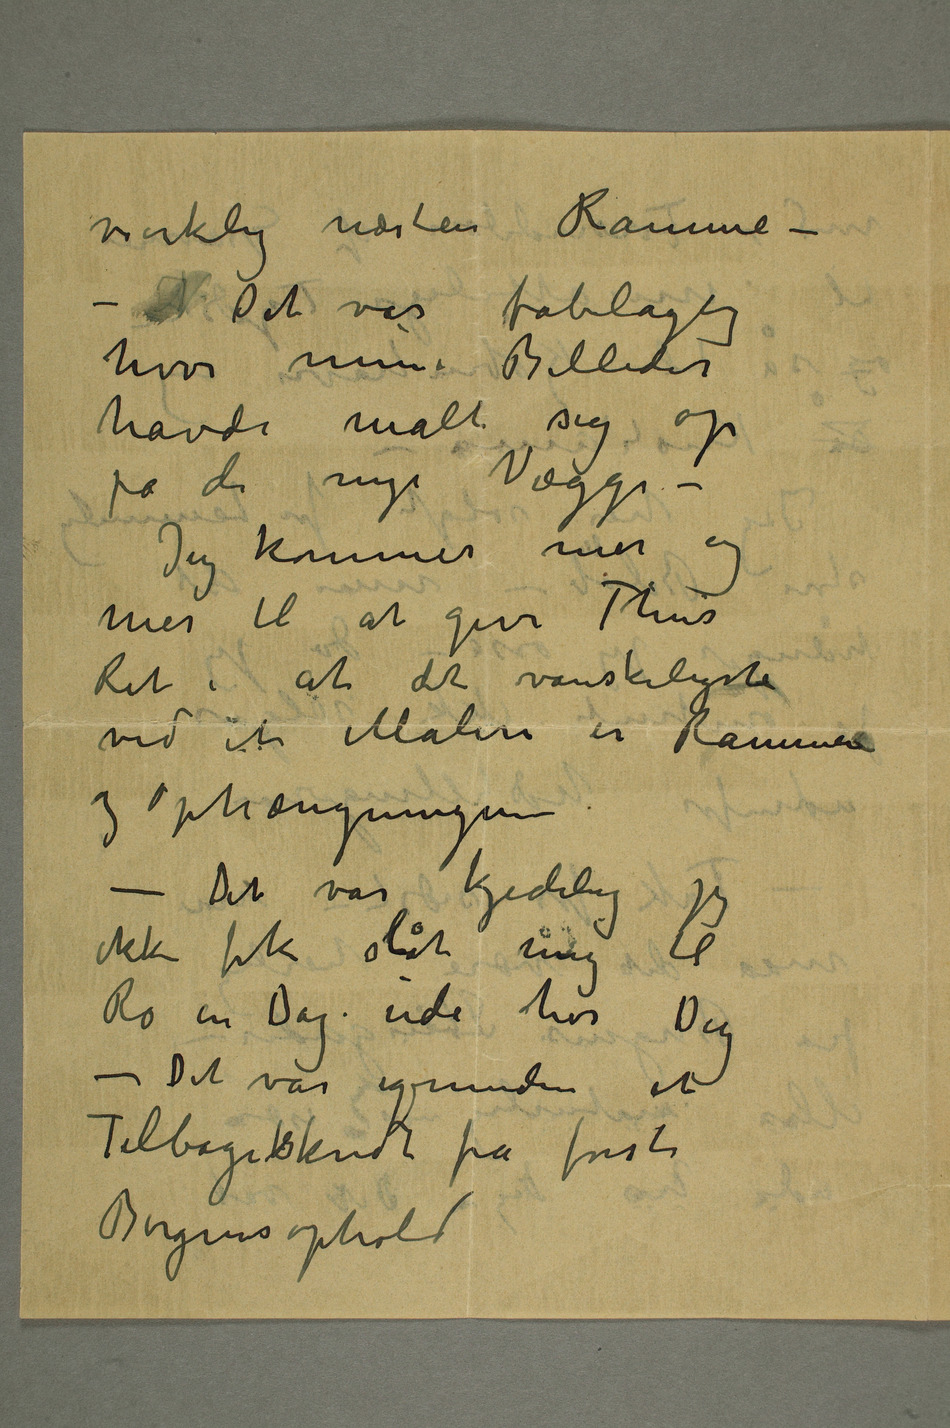 virklig næsten Ramme –
– Det var fabelagtig
hvor mine Billeder
havde malt sig op
på de nye Vægge –
Jeg kommer mer og
mer til at give Thiis
Ret i at det vanskeligste
ved et Maleri er Rammen
og Ophængningen
– Det var kjedelig jeg
ikke fik slåt mig til
Ro en Dag ude hos Dig
– Det var igrunden et
Tilbageskridt fra første
Bergensophold